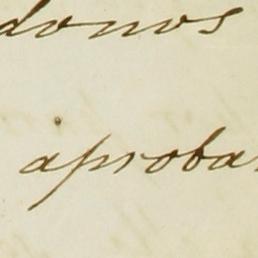 donos
aproba